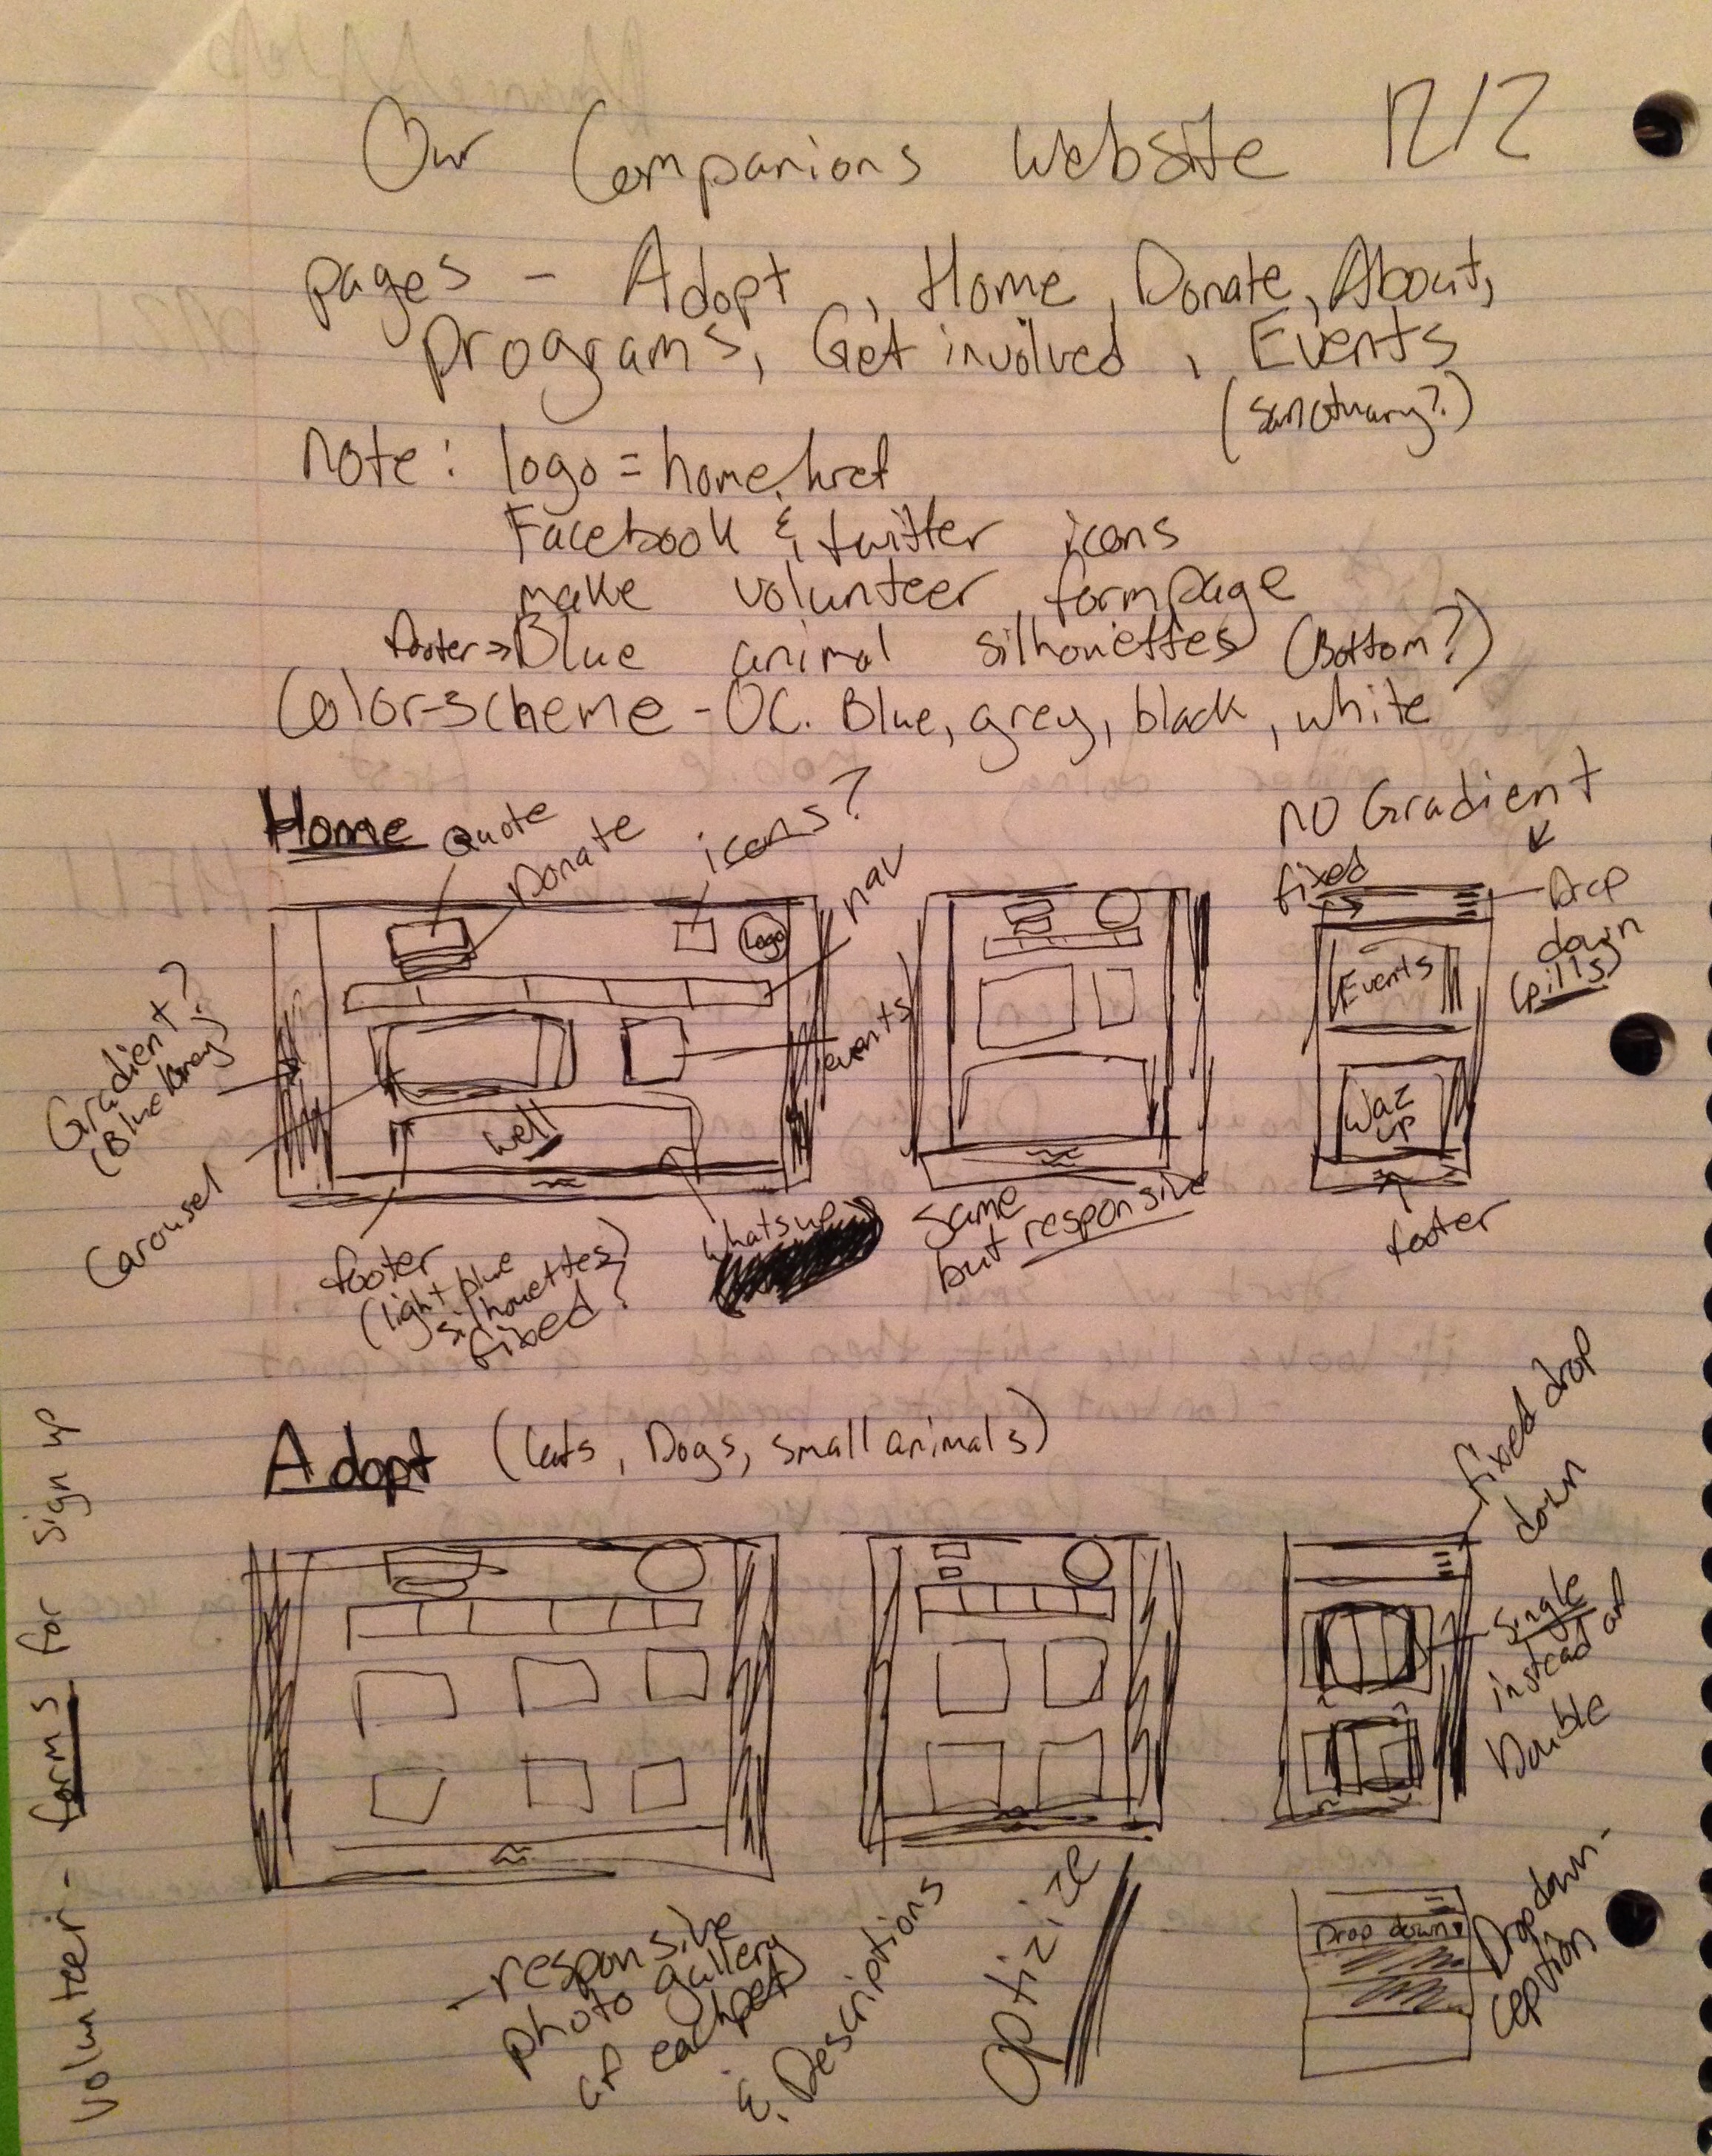 Our Companions Website 12/2
pages - Adopt, Home, Donate, About,
programs, Get involved, Events
(sanctuary?)
note: logo = home.href
Facebook & twitter icons
make volunteer form page
footer → Blue animal silhouettes (Bottom?)
Color-scheme - OC. Blue, grey, black, white
Home
Quote
Donate
icons?
nav
Logo
Gradient?
(Blue/Grey)
Carousel
events
Well
footer
(light blue
silhouettes)
fixed?
whatsup
same
but responsive
NO Gradient
fixed
Drop
down
(pills)
Events
Waz
up
footer
Adopt (Cats, Dogs, small animals)
fixed drop
down
single
instead of
Double
- responsive
photo gallery
of each pet
& Descriptions
Optizize
Drop down
Dropdown-
ception
Volunteer - forms for sign up